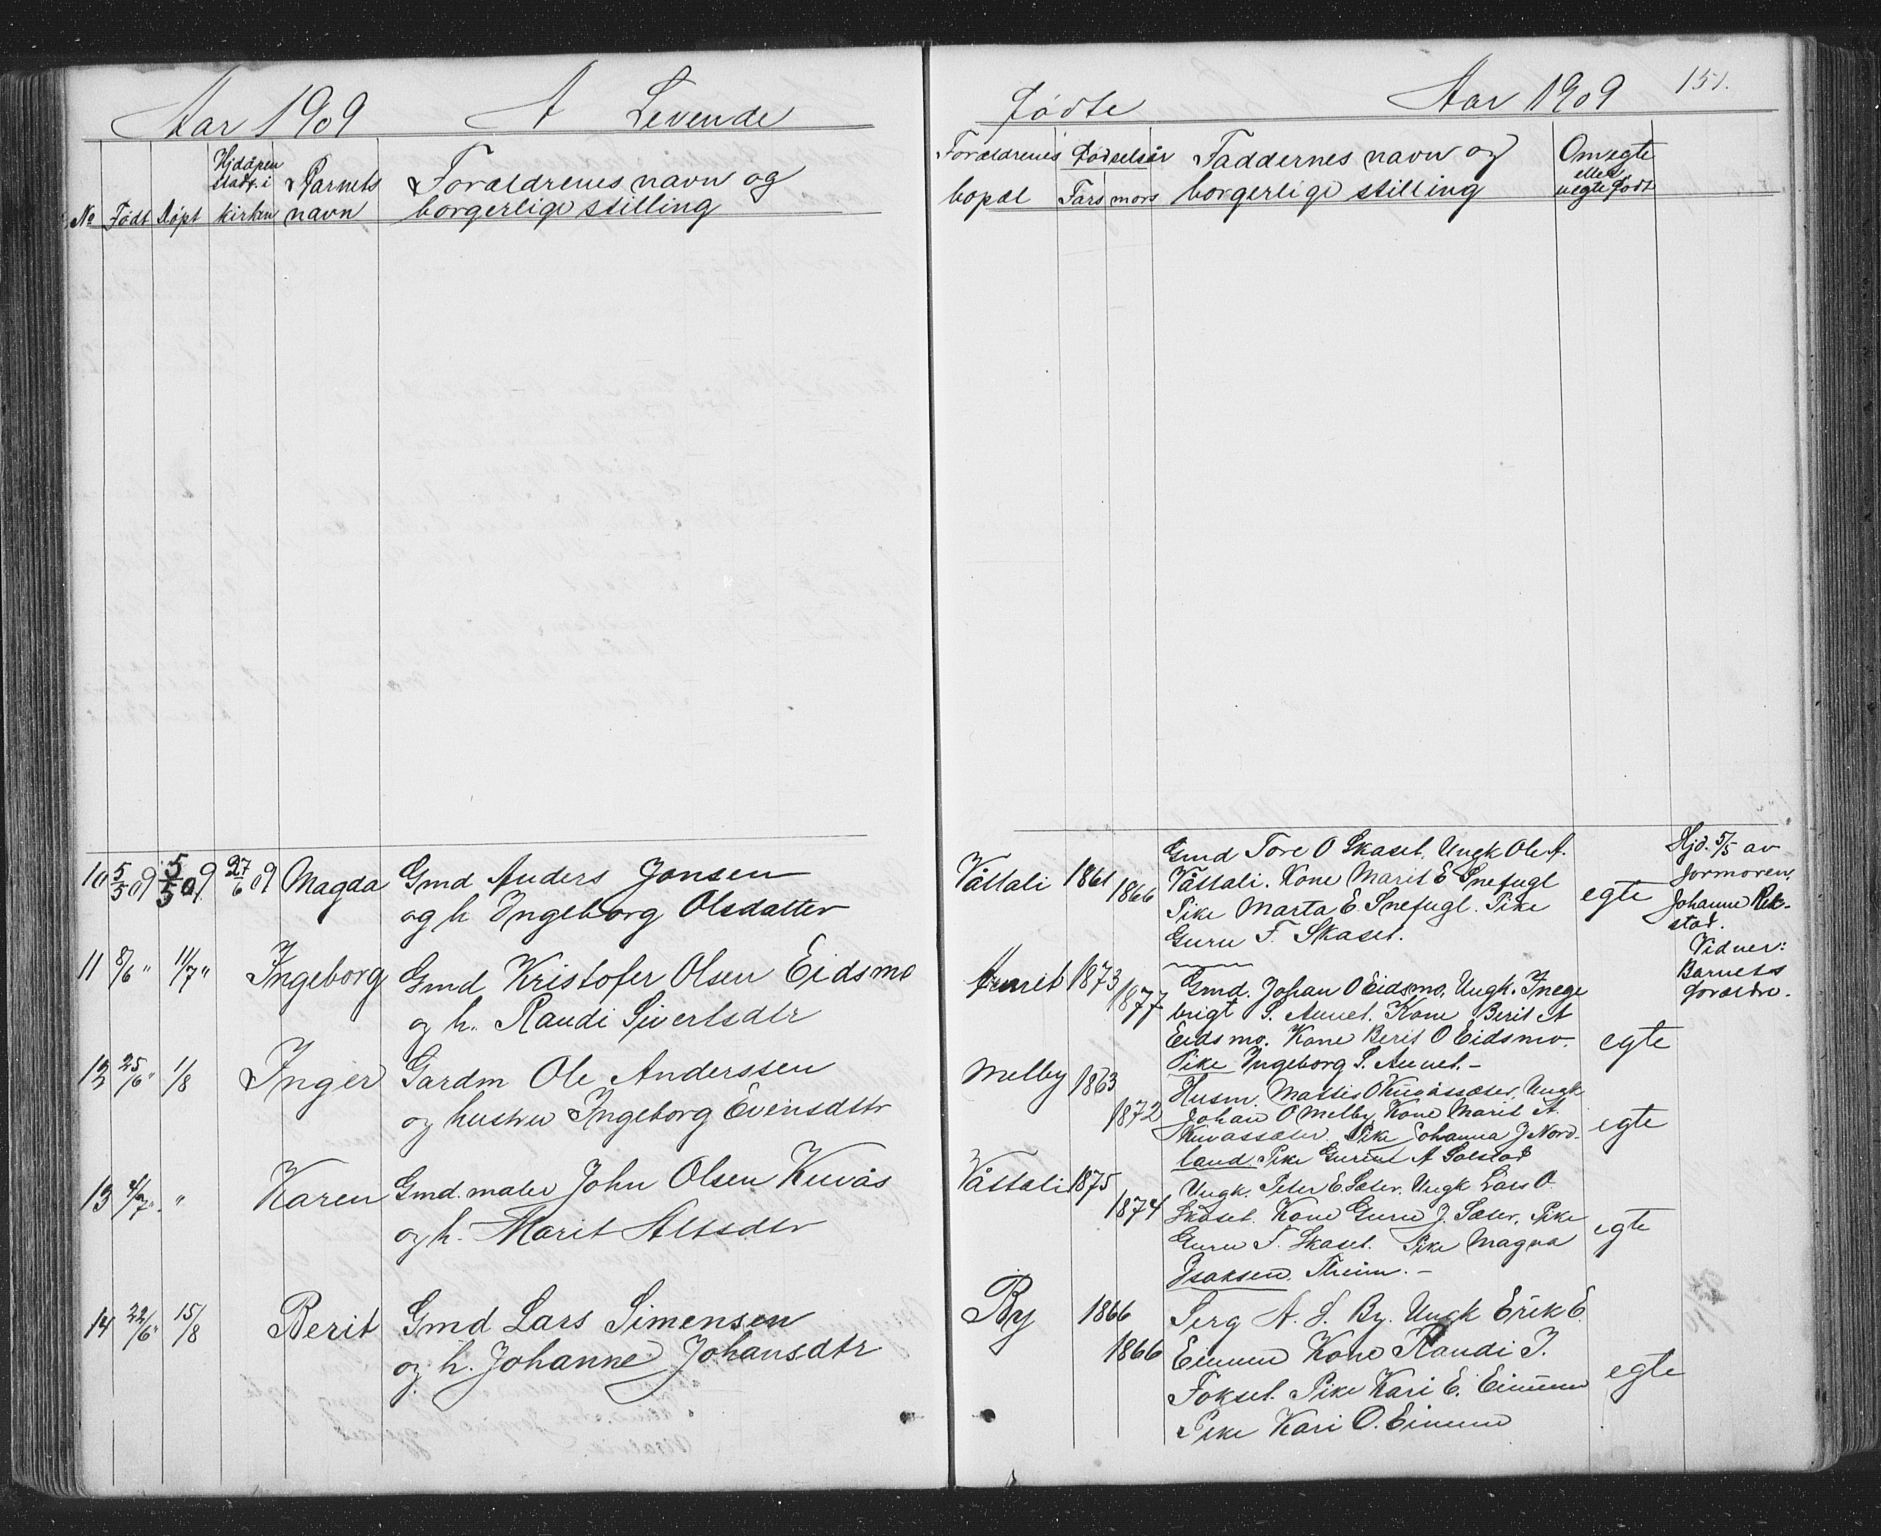 Aar 1909 A Levende
fødte Aar 1909 151.
No Født Døpt Hjddpen stadf. i kirken Barnets navn Forældrenes navn og borgerlige stilling
Forældrenes bopæl Fødselsår Fars mors Faddernes navn og borgerlige stilling Om egte eller uegte født
10 5/5 09 5/5 09 27/6 09 Magda Gmd Anders Jonsen
og h. Ingeborg Olsdatter
Våttali 1861 1866 Gmd Tore O Skaset. Ungk Ole A.
Våttali. Kone Marit E Snefugl
Pike Marta E. Snefugl. Pike
Guru F. Skaset.
egte
Hjd. 5/5 av
Jormoren,
Johanne Rek-
stad.
Vidner:
Barnets
forældre.
11 8/6 " 11/7 " Ingeborg Gmd Kristofer Olsen Eidsmo
og h. Randi Sivertsdtr
Aunet 1873 1877 Gmd. Johan O Eidsmo. Ungk. Inge
brigt S. Aunet. Kone Berit A
Eidsmo. Kone Berit O Eidsmo.
Pike Ingeborg S. Aunet. -
egte
12 25/6 " 1/8 Inger Gardm Ole Anderssen
og hustru Ingeborg Evensdtr
Melby 1863 1872 Husm. Mattis O Kuvåssæter, Ungk
Johan O Melby, Kone Marit A.
Kuvassæter. Pike Johanna J Nord-
land. Pike Gurine A Solstad
egte
13 4/7 " " Karen Gmd. maler John Olsen Kuvås
og h. Marit Altsdtr
Våttali 1875 1874 Ungk. Peter E. Sæter. Ungk Lars O.
Skaset. Kone Guru J. Sæter, Pike
Guru F. Skaset. Pike Magna
Isaksen. Thrim. -
egte
14 22/6 " 15/8 Berit Gmd Lars Simensen
og h. Johanne Johansdtr
By 1866 1866 Serg A. L. By. Ungk Erik E.
Eimun Kone Randi I.
Fokset. Pike Kari E. Eimun
Pike Kari O. Eimun
egte